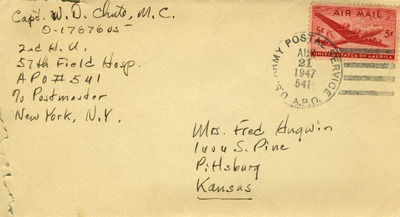 Capt. W. D. Chute, M.C.
O-1767605
2nd H.U.
57th Field Hosp.
APO #541
℅ Postmaster
New York, N.Y.
AIR MAIL
5¢ 5¢
UNITED STATES OF AMERICA
U.S. ARMY POSTAL SERVICE
AUG
21
1947
541
A.P.O.
Mrs. Fred Hugwin
1404 S. Pine
Pittsburg
Kansas